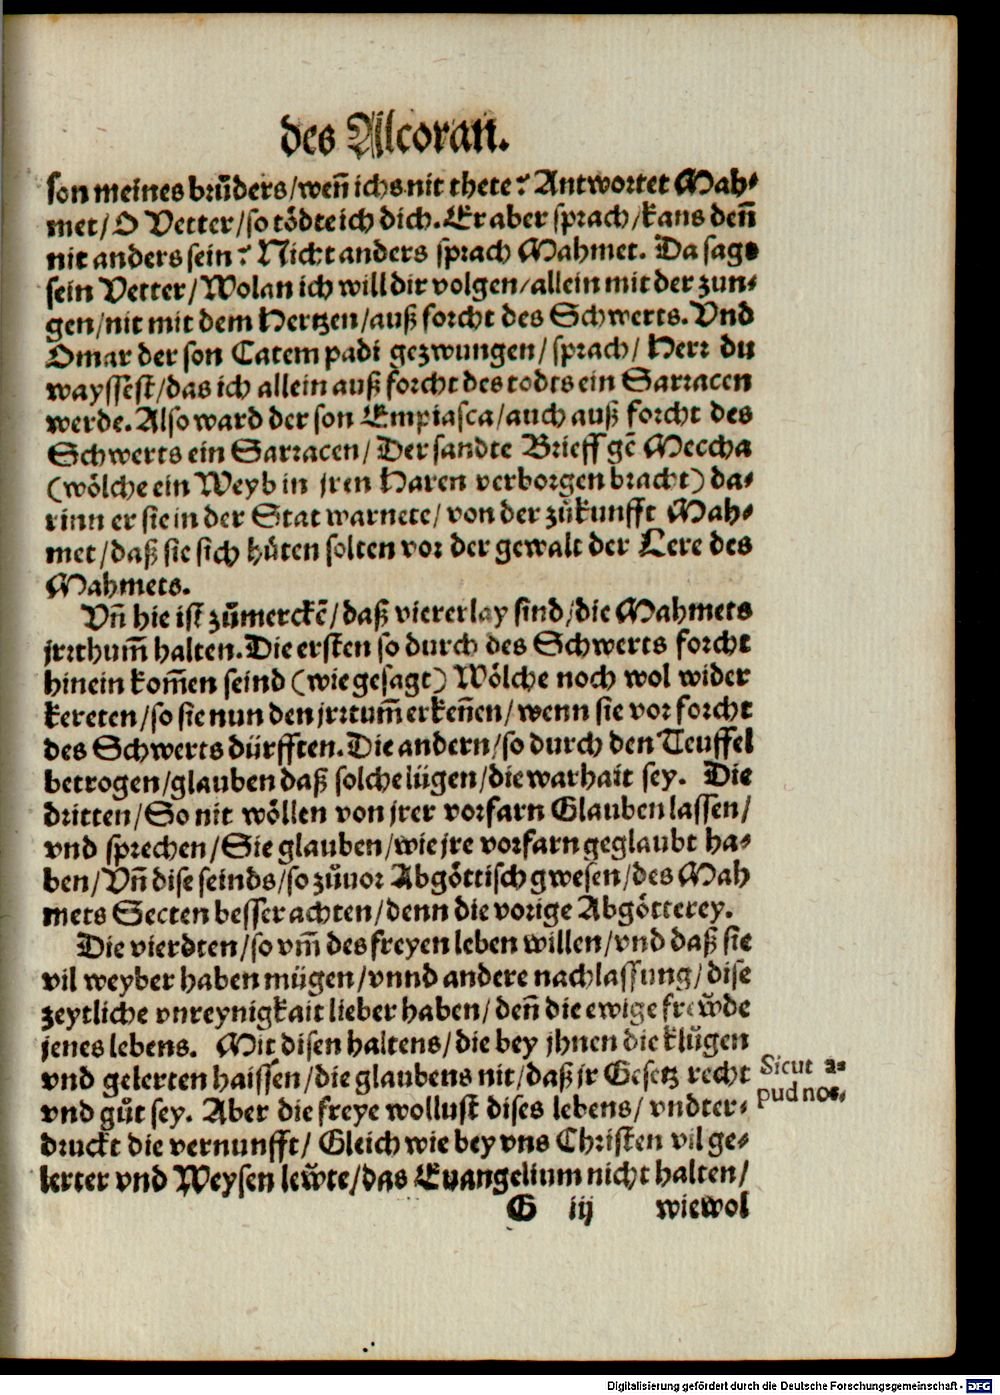 des Alcoran.
son meines brůders/weñ ichs nit thete? Antwortet Mah⸗
met/O Vetter/so tödte ich dich. Er aber sprach/kans deñ
nit anders sein? Nicht anders sprach Mahmet. Da sagt
sein Vetter/Wolan ich will dir volgen/allein mit der zun⸗
gen/nit mit dem Hertzen/auß forcht des Schwerts. Vnd
Omar der son Catem padi gezwungen/sprach/Herr du
wayssest/das ich allein auß forcht des todts ein Sarracen
werde. Also ward der son Empiasca/auch auß forcht des
Schwerts ein Sarracen/Der sandte Brieff gē Meccha
(wölche ein Weyb in jren Haren verborgen bracht) da⸗
rinn er sie in der Stat warnete/von der zůkunfft Mah⸗
met/daß sie sich hüten solten vor der gewalt der Lere des
Mahmets.
Vñ hie ist zůmerckē/daß viererlay sind/die Mahmets
jrrthum̃ halten. Die ersten so durch des Schwerts forcht
hinein kom̃en seind (wie gesagt) Wölche noch wol wider
kereten/so sie nun den jrrtum̃ erkeñen/wenn sie vor forcht
des Schwerts dürfften. Die andern/so durch den Teuffel
betrogen/glauben daß solche lügen/die warhait sey. Die
dritten/So nit wöllen von jrer vorfarn Glauben lassen/
vnd sprechen/Sie glauben/wie jre vorfarn geglaubt ha⸗
ben/Vñ dise seinds/so zůuor Abgöttisch gwesen/des Mah
mets Secten besser achten/denn die vorige Abgötterey.
Die vierdten/so vm̃ des freyen leben willen/vnd daß sie
vil weyber haben mügen/vnnd andere nachlassung/dise
zeytliche vnreynigkait lieber haben/deñ die ewige frewͤde
jenes lebens. Mit disen haltens/die bey jhnen die klůgen
vnd gelerten haissen/die glaubens nit/daß jr Gesetz recht
vnd gůt sey. Aber die freye wollust dises lebens/vndter⸗
druckt die vernunfft/Gleich wie bey vns Christen vil ge⸗
lerter vnd Weysen lewͤte/das Euangelium nicht halten/
Sicut a⸗
pud nos.
G iij wiewol
Digitalisierung gefördert durch die Deutsche Forschungsgemeinschaft - DFG